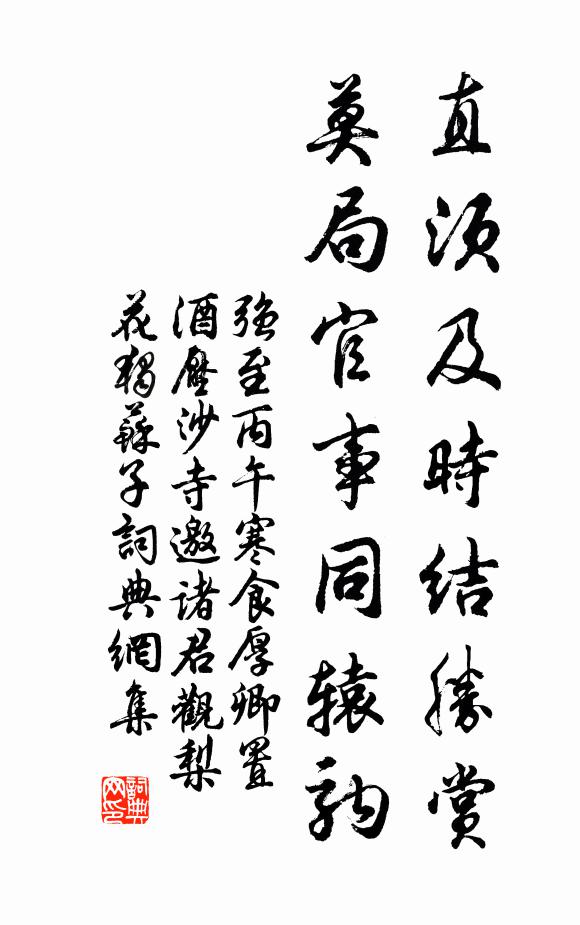 直須及時結勝賞
莫局官事同轅駒
強至丙午寒食厚卿置
酒壓沙寺邀诸君觀梨
花獨蘇子詞典網集
詞典网印